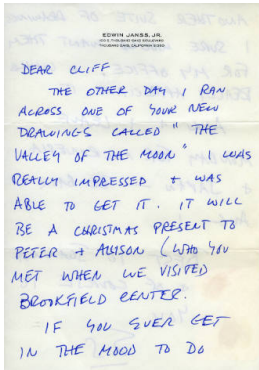 EDWIN JANSS, JR.
THOUSAND OAKS, CALIFORNIA
DEAR CLIFF
THE OTHER DAY I RAN
ACROSS ONE OF YOUR NEW
DRAWINGS CALLED "THE
VALLEY OF THE MOON" I WAS
REALLY IMPRESSED + WAS
ABLE TO GET IT. IT WILL
BE A CHRISTMAS PRESENT TO
PETER + ALLYSON (WHO YOU
MET WHEN WE VISITED
BROOKFIELD CENTER.
IF YOU EVER GET
IN THE MOOD TO DO